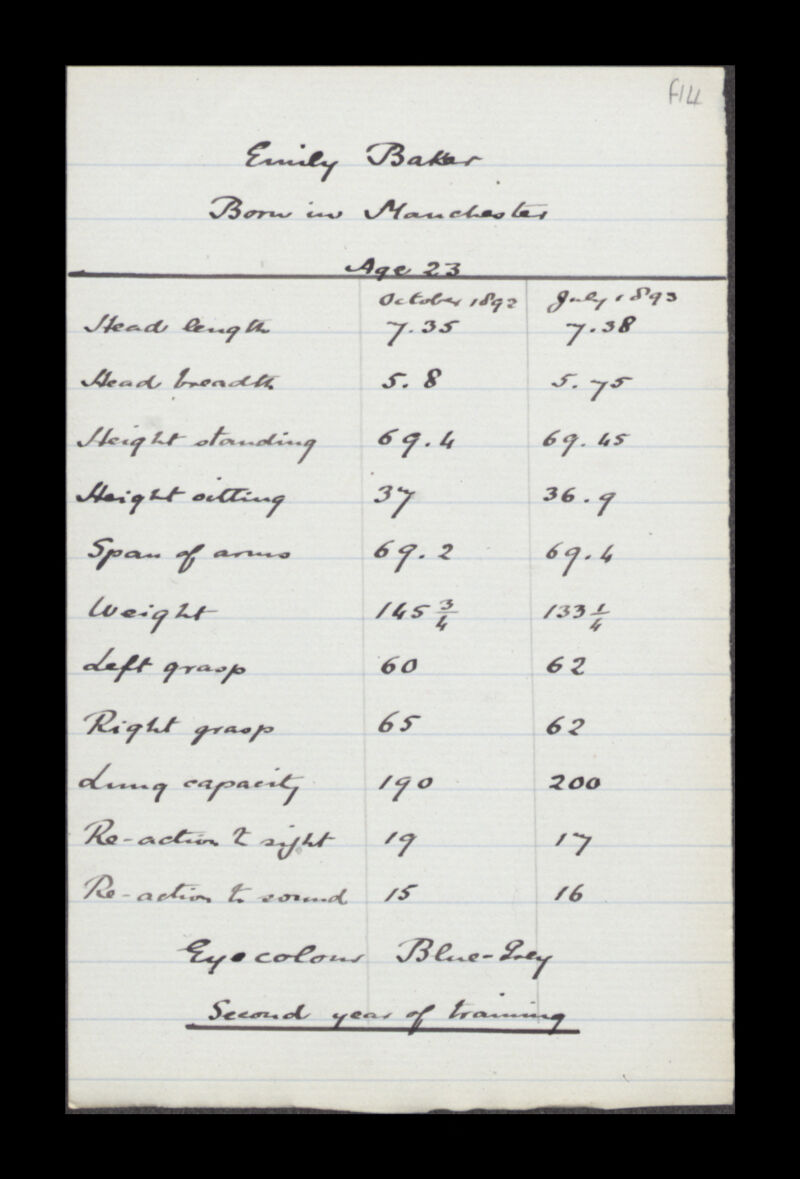 f14
Emily Baker
Born in Manchester
Age 23
October 1892 July 1893
Head length 7.35 7.38
Head breadth 5.8 5.75
Height standing 69.4 69.45
Height sitting 37 36.9
Span of arms 69.2 69.4
Weight 145 3/4 133 1/4
Left grasp 60 62
Right grasp 65 62
Lung capacity 190 200
Re-action to sight 19 17
Re-action to sound 15 16
Eye colour Blue-Grey
Second year of training